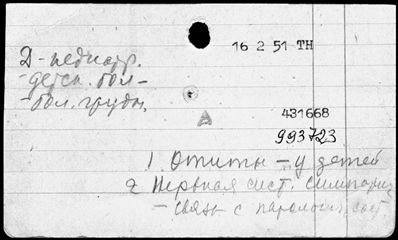 16 2 51 TH
Д-педиатр.
-детск. бол-
-бол. груди,
А
431668
993723
1 Отиты - у детей
2 Нервная сист. симпатич.
- связь с патологич. сост